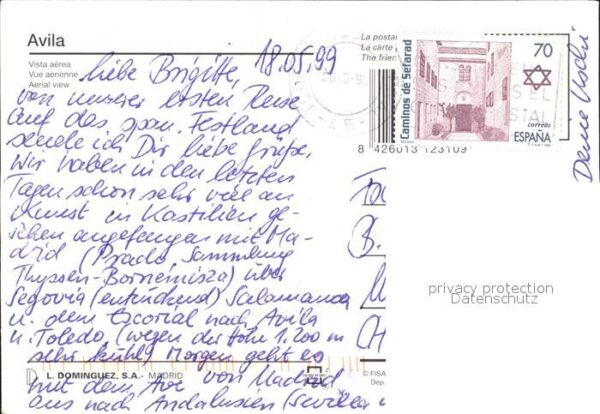 Avila
Vista aérea
Vue aérienne
Aerial view
18.05.99
Liebe Brigitte,
von unserer letzten Reise
auf das span. Festland
sende ich Dir liebe Grüße.
Wir haben in den letzten
Tagen schon sehr viel an
Kunst in Kastilien ge-
sehen angefangen mit Ma-
drid (Prado, Sammlung
Thyssen-Bornemisza) über
Segovia (entzückend) Salamanca
u. dem Escorial nach Avila
u. Toledo (wegen der Höhe 1.200 m
sehr kühl) Morgen geht es
mit dem Ave von Madrid
aus nach Andalusien (Sevilla u
Deine Uschi
La postal
La carte
The frien
Caminos de Sefarad
70
correos
ESPAÑA
8 426013 123109
B.
privacy protection
Datenschutz
L. DOMINGUEZ, S.A. - MADRID
© FISA
Dep.